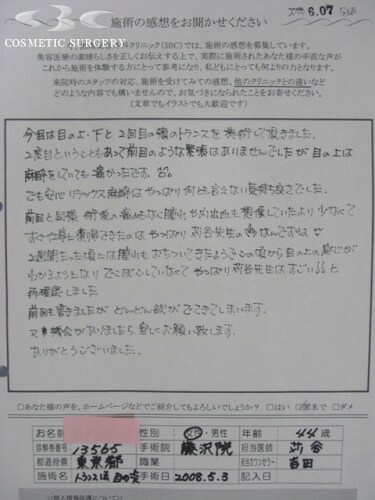 6.07
施術の感想をお聞かせください
COSMETIC SURGERY
クリニック(SBC)では、施術の感想を募集しています。
美容医療の素晴らしさを正しくお伝えする上で、実際に施術されたあなた様の率直な声が
これから施術を体験する方にとって参考になり、私どもにとっても何よりの力となります。
来院時のスタッフの対応、施術を受けてみての感想、他のクリニックとの違いなど
どのような内容でも構いませんので、お気づきになられたことをお寄せください。
(文章でもイラストでも大歓迎です)
今日は目の上・下と2回目の頬のトランスを施術して頂きました。
2度目ということもあって前回のような緊張はありませんでしたが目の上は
麻酔をしていても痛かったです。
でも安心リラックス麻酔はやっぱり何とも言えない気持ち良さでした。
前回と同様 術後の痛みもなく腫れや内出血も想像していたより少なくて
すぐ仕事に復帰できたのは やっぱり苅谷先生の
2週間たった頃には腫れもおちついてきたようでこの頃から目の上の感じが
わかるようになり でこぼこしていなくて やっぱり苅谷先生はすごい!!と
再確認しました
前回も書きましたが どんどん欲がでてきてしまいます。
又、機会がありましたら宜しくお願い致します。
ありがとうございました。
□あなた様の声を、ホームページなどでご紹介してもよろしいでしょうか? □はい ☑匿名で □ダメ
お名前 性別 女性・男性 年齢 44歳
診察券番号 13565 手術院 藤沢院 担当医師 苅谷
都道府県 東京都 職業 担当カウンセラー 吉田
施術名 トランス法 目の 手術日 2008.5.3 記入日